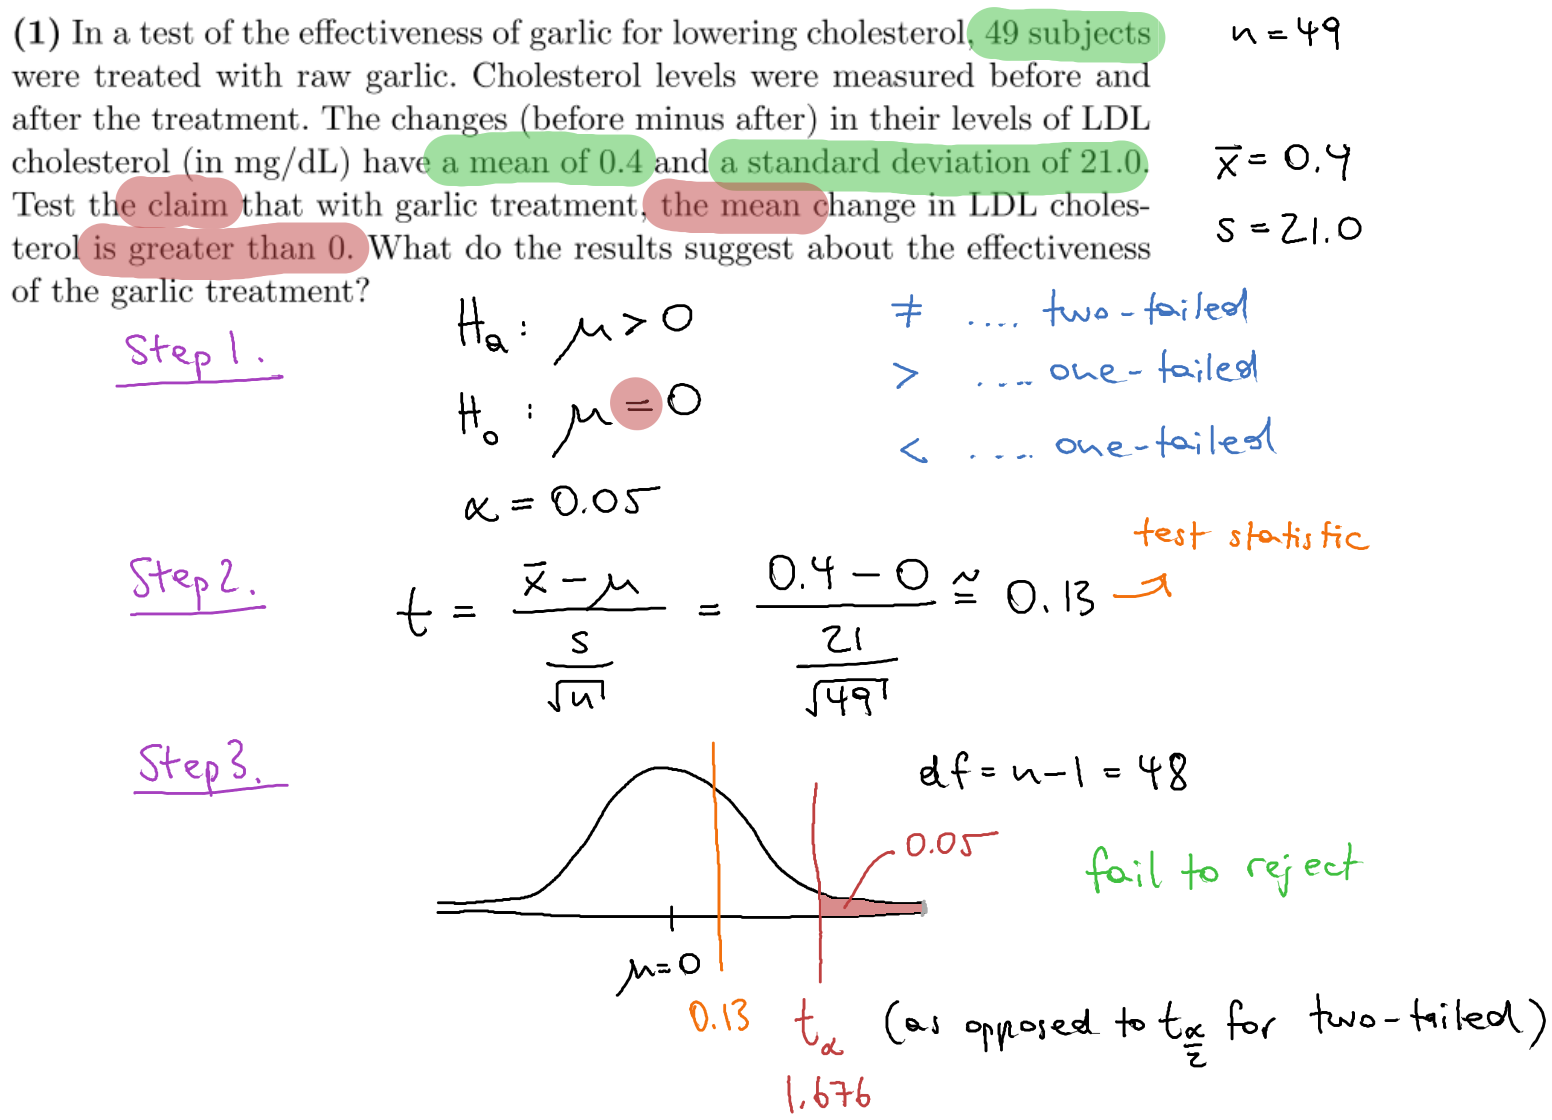 (1) In a test of the effectiveness of garlic for lowering cholesterol, 49 subjects
were treated with raw garlic. Cholesterol levels were measured before and
after the treatment. The changes (before minus after) in their levels of LDL
cholesterol (in mg/dL) have a mean of 0.4 and a standard deviation of 21.0.
Test the claim that with garlic treatment, the mean change in LDL choles-
terol is greater than 0. What do the results suggest about the effectiveness
of the garlic treatment?
n = 49
x̄ = 0.4
s = 21.0
Step 1.
Hₐ : μ > 0
H₀ : μ = 0
α = 0.05
≠ .... two-tailed
> .... one-tailed
< .... one-tailed
Step 2.
t = (x̄ − μ) / (s / √n) = (0.4 − 0) / (21 / √49) ≅ 0.13
test statistic
Step 3.
df = n − 1 = 48
0.05
fail to reject
μ = 0
0.13
t_α (as opposed to t_α/2 for two-tailed)
1.676